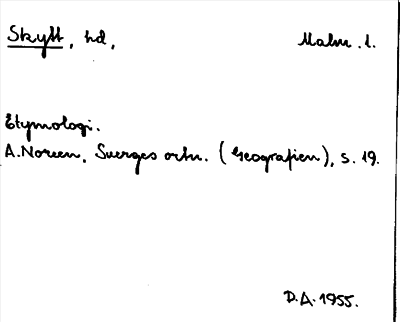 Skytt, hd, Malm. l.
Etymologi.
A. Noreen, Sverges ortn. (Geografien), s. 19.
D.A. 1955.